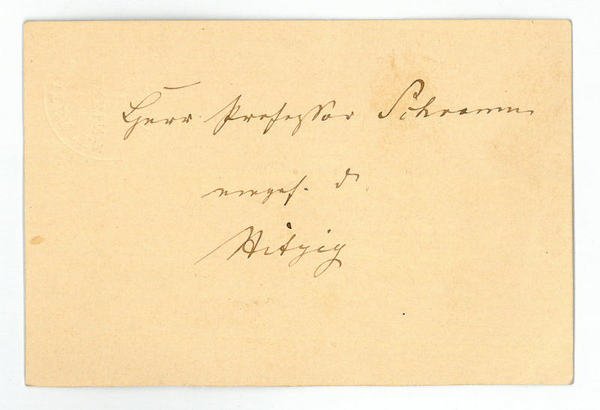 Herr Professor Schramm
Hitzig